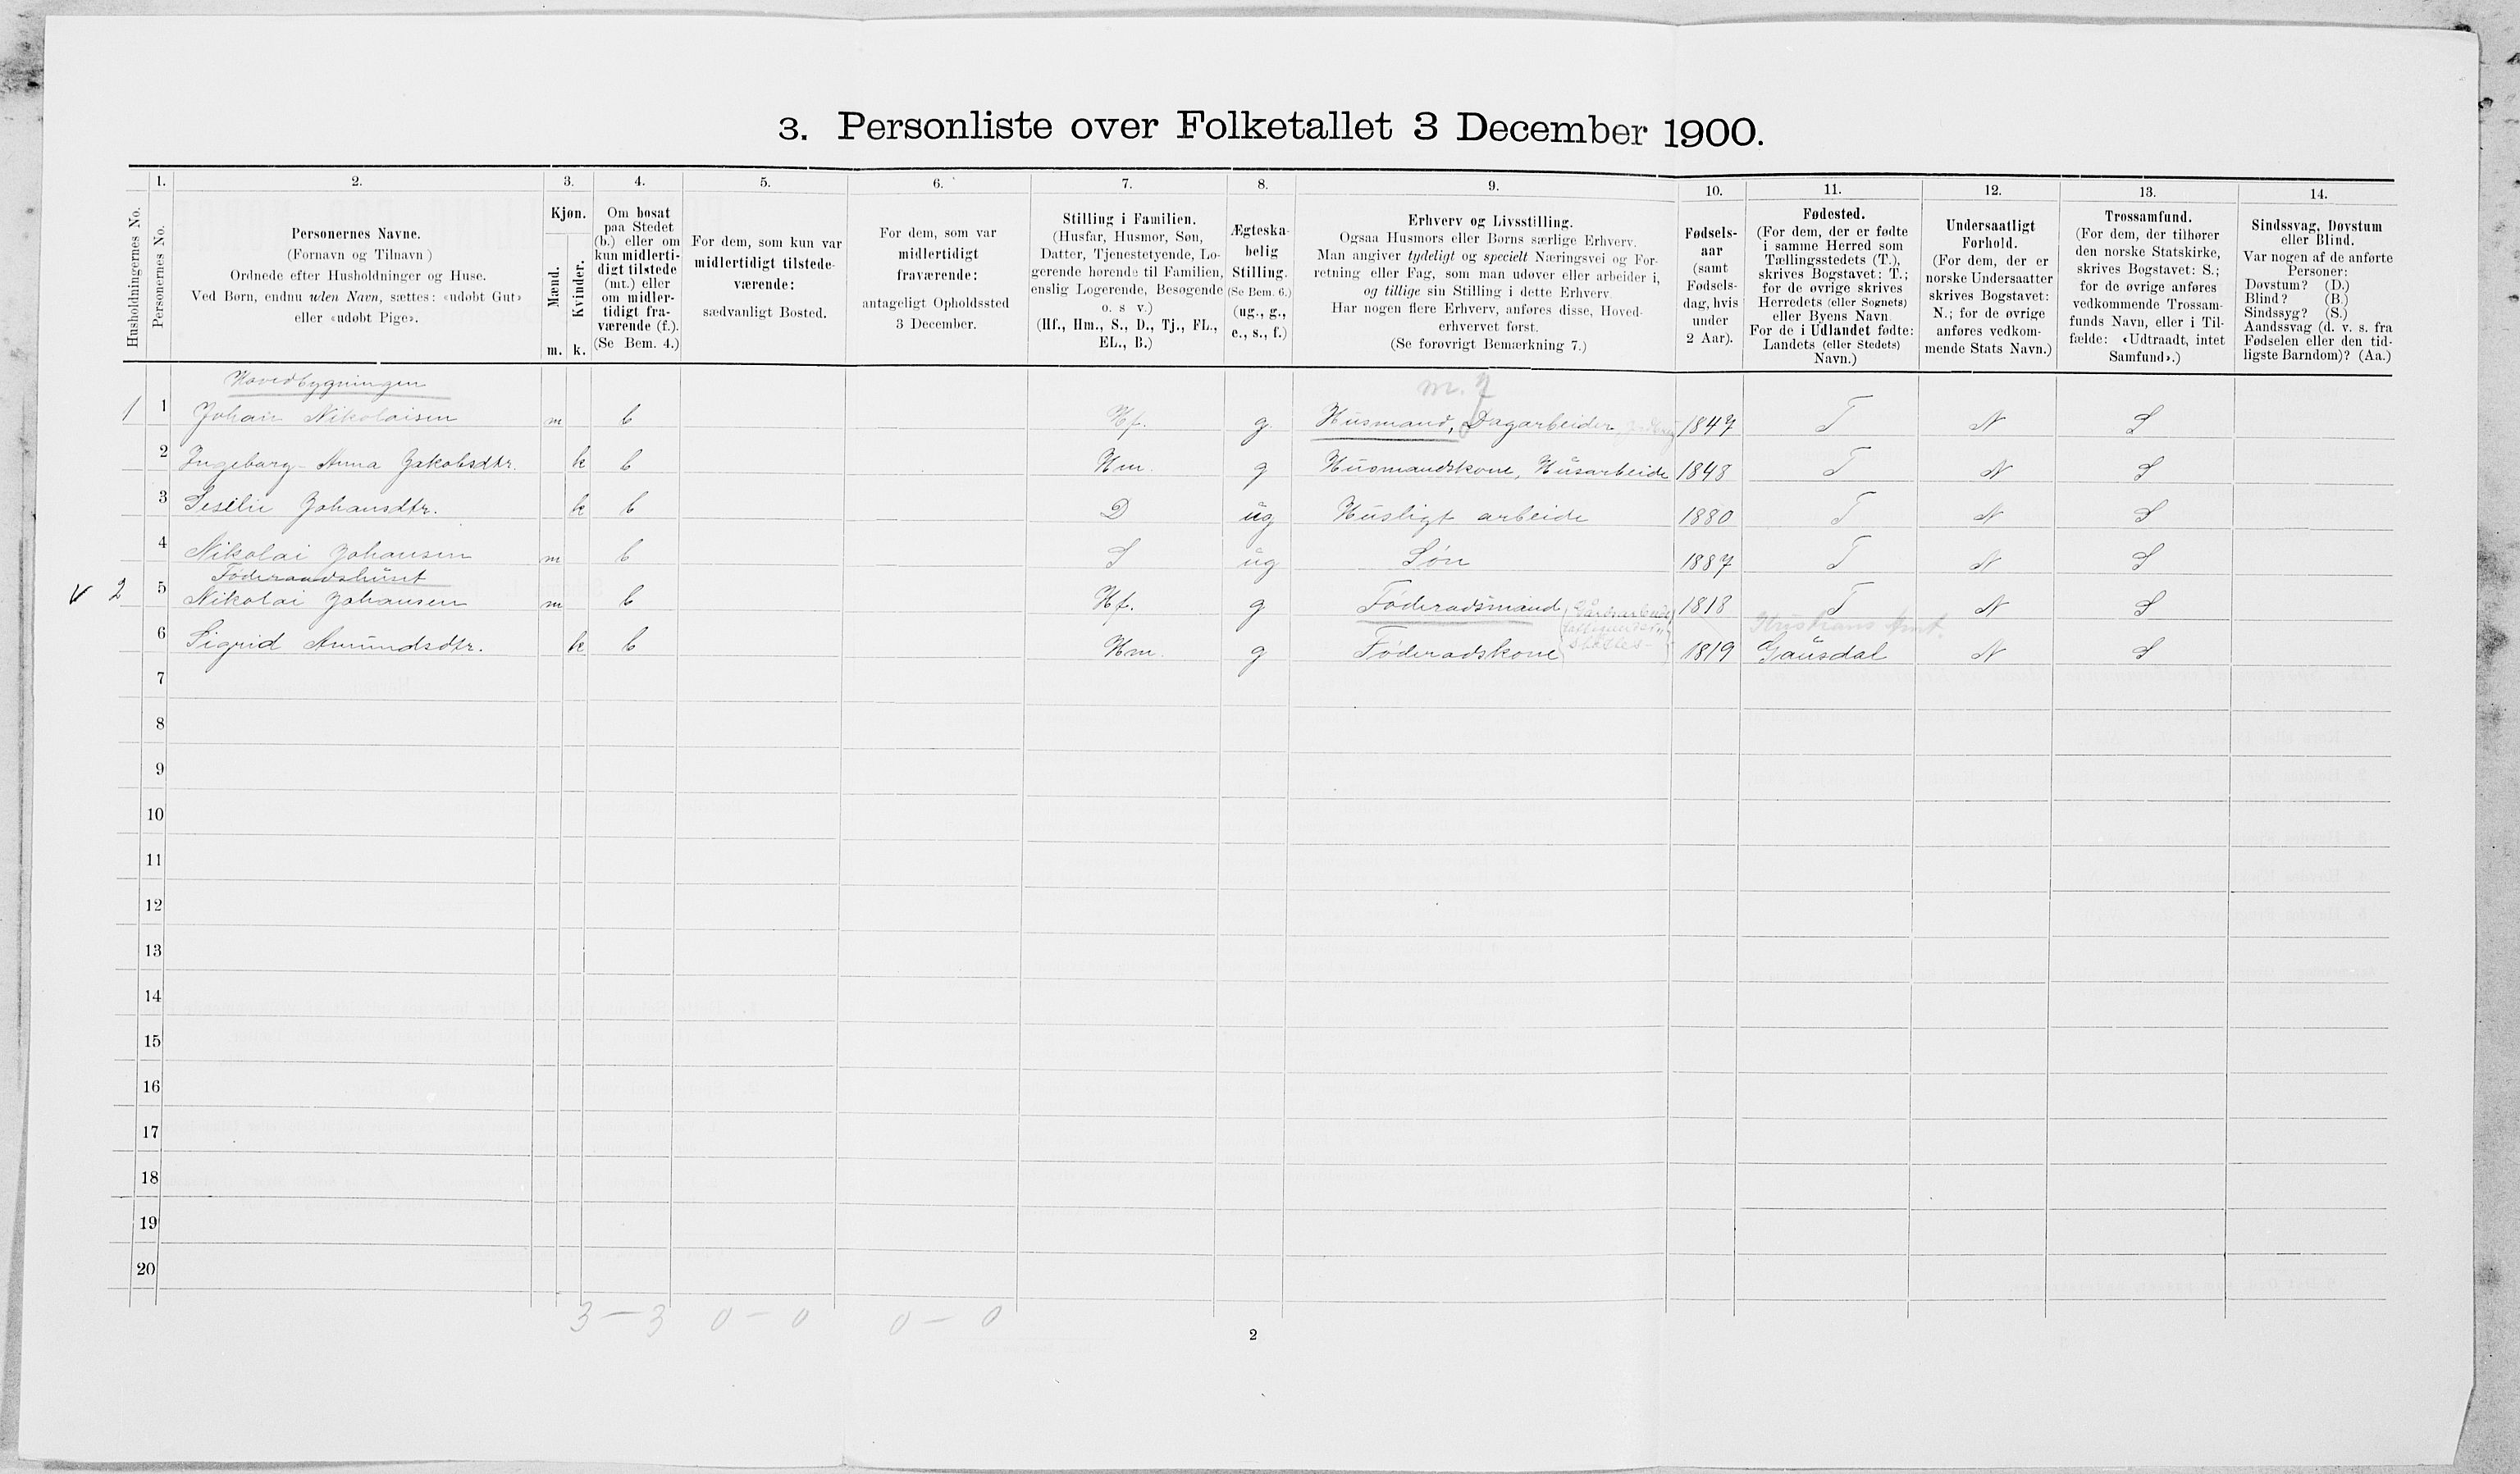 3. Personliste over Folketallet 3 December 1900.
Husholdningernes No.
1.
Personernes No.
2.
Personernes Navne.
(Fornavn og Tilnavn)
Ordnede efter Husholdninger og Huse.
Ved Børn, endnu uden Navn, sættes: «udøbt Gut»
eller «udøbt Pige».
3.
Kjøn.
Mænd.
Kvinder.
m. k.
4.
Om bosat
paa Stedet
(b.) eller om
kun midlerti-
digt tilstede
(mt.) eller
om midler-
tidigt fra-
værende (f.).
(Se Bem. 4.)
5.
For dem, som kun var
midlertidigt tilstede-
værende:
sædvanligt Bosted.
6.
For dem, som var
midlertidigt
fraværende:
antageligt Opholdssted
3 December.
7.
Stilling i Familien.
(Husfar, Husmor, Søn,
Datter, Tjenestetyende, Lo-
gerende hørende til Familien,
enslig Logerende, Besøgende
o. s v.)
(Hf., Hm., S., D., Tj., FL.,
EL., B.)
8.
Ægteska-
belig
Stilling.
(Se Bem. 6.)
(ug., g.,
e., s., f.)
9.
Erhverv og Livsstilling.
Ogsaa Husmors eller Børns særlige Erhverv.
Man angiver tydeligt og specielt Næringsvei og For-
retning eller Fag, som man udøver eller arbeider i,
og tillige sin Stilling i dette Erhverv.
Har nogen flere Erhverv, anføres disse, Hoved-
erhvervet først.
(Se forøvrigt Bemærkning 7.)
10.
Fødsels-
aar
(samt
Fødsels-
dag, hvis
under
2 Aar).
11.
Fødested.
(For dem, der er fødte
i samme Herred som
Tællingsstedets (T.),
skrives Bogstavet: T.;
for de øvrige skrives
Herredets (eller Sognets)
eller Byens Navn.
For de i Udlandet fødte:
Landets (eller Stedets)
Navn.)
12.
Undersaatligt
Forhold.
(For dem, der er
norske Undersaatter
skrives Bogstavet:
N.; for de øvrige
anføres vedkom-
mende Stats Navn.)
13.
Trossamfund.
(For dem, der tilhører
den norske Statskirke,
skrives Bogstavet: S.;
for de øvrige anføres
vedkommende Trossam-
funds Navn, eller i Til-
fælde: «Udtraadt, intet
Samfund».)
14.
Sindssvag, Døvstum
eller Blind.
Var nogen af de anførte
Personer:
Døvstum? (D.)
Blind? (B.)
Sindssyg? (S.)
Aandssvag (d. v. s. fra
Fødselen eller den tid-
ligste Barndom)? (Aa.)
Hovedbygningen
1 1 Johan Nikolaisen m b Hf. g Husmand, Dagarbeider 1847 T N S
2 Ingeborg Anna Jakobsdtr. k b Hm. g Husmandskone, Husarbeide 1848 T N S
3 Sesilie Johansdtr. k b D ug Husligt arbeide 1880 T N S
4 Nikolai Johansen m b S ug Søn 1887 T N S
Føderaadshuset
v 2 5 Nikolai Johansen m b Hf. g Føderadsmand 1818 T N S
Kristians Amt.
6 Sigrid Amundsdtr. k b Hm. g Føderadskone 1819 Gausdal N S
7
8
9
10
11
12
13
14
15
16
17
18
19
20
3 – 3 0 – 0 0 – 0
2